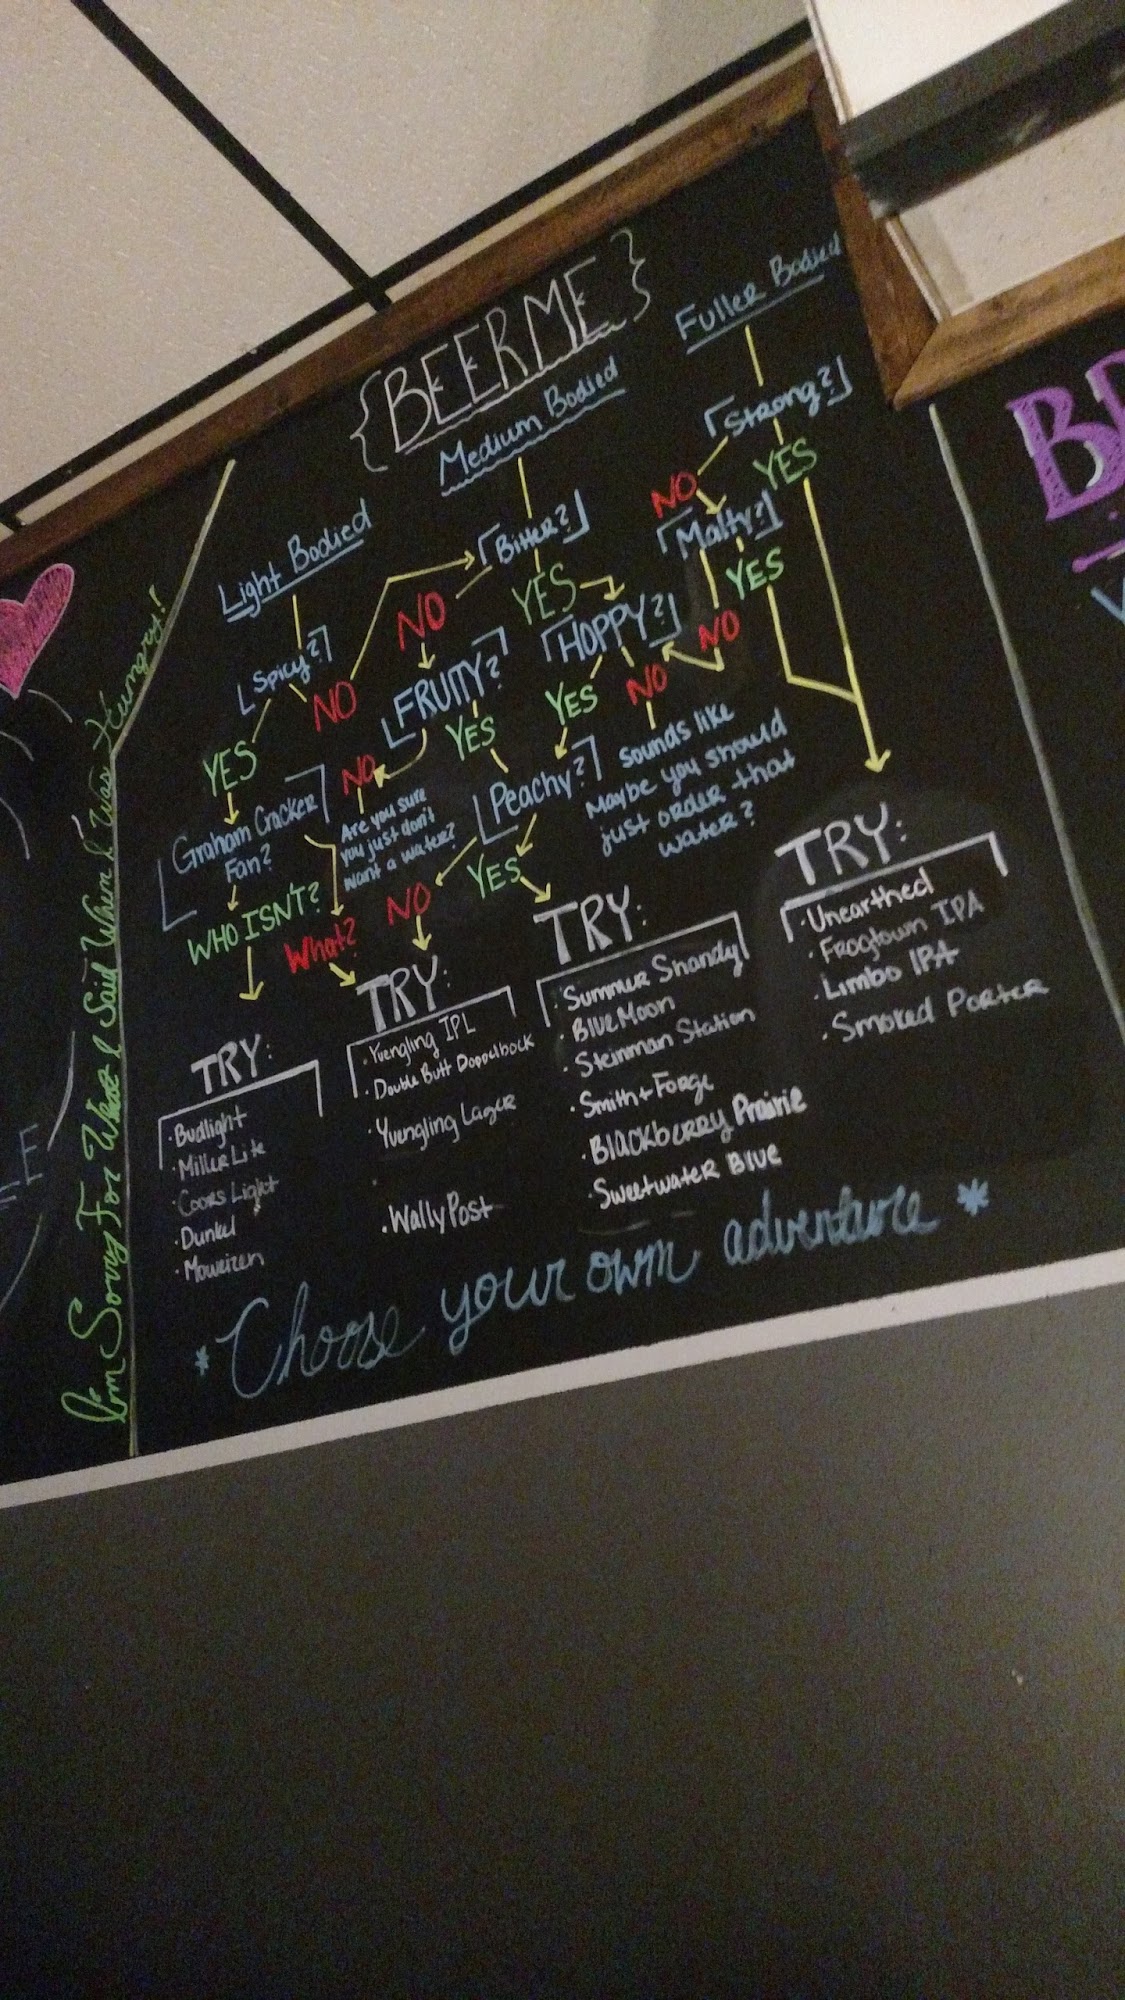 {BEER ME}
Light Bodied
Spicy?
NO
YES
Graham Cracker
Fan?
WHO ISN'T?
What?
Medium Bodied
Bitter?
NO
YES
FRUITY?
NO
YES
Are you sure
you just don't
want a water?
HOPPY?
YES
NO
Peachy?
NO
YES
sounds like
Maybe you should
just order that
water?
Fuller Bodied
Strong?
NO
YES
Malty?
YES
NO
TRY:
· Budlight
· Miller Lite
· Coors Light
· Dunkel
· Moweizen
TRY:
· Yuengling IPL
· Double Butt Doppelbock
· Yuengling Lager
· Wally Post
TRY:
· Summer Shandy
· Blue Moon
· Steinman Station
· Smith + Forge
· Blackberry Prairie
· Sweetwater Blue
TRY:
· Unearthed
· Frogtown IPA
· Limbo IPA
· Smoked Porter
* Choose your own adventure *
I'm Sorry For What I Said When I Was Hungry!